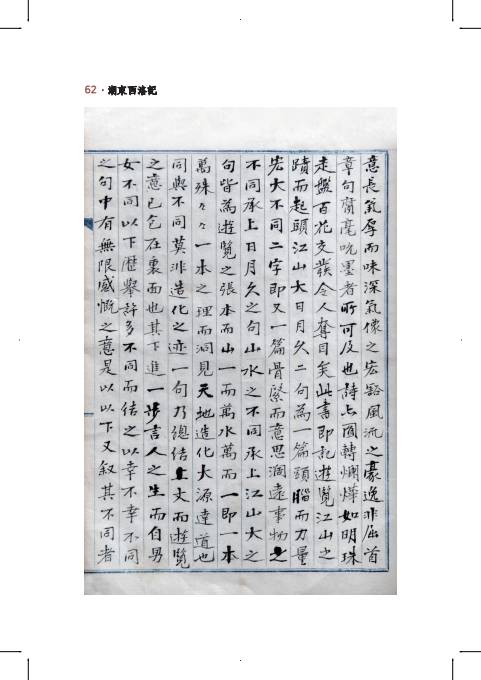 62 · 湖東西洛記
意長氣厚而味深氣像之宏豁風流之豪逸非屈首
章句腐毫吮墨者所可及也詩亦圓轉爛燁如明珠
走盤百花交發令人奪目矣此書即記遊覽江山之
蹟而起頭江山大日月久二句為一篇頭腦而力量
宏大不同二字即又一篇骨緊而意思濶遠事物之
不同承上日月久之句山水之不同承上江山大之
句皆為遊覽之張本而山一而萬水萬而一即一本
萬殊々々一本之理而洞見天地造化大源達道也
同與不同莫非造化之迹一句乃總結上文而遊覽
之意已包在裏面也其下進一步言人之生而自男
女不同以下歷舉許多不同而結之以幸不幸不同
之句中有無限感慨之意是以以下又叙其不同者